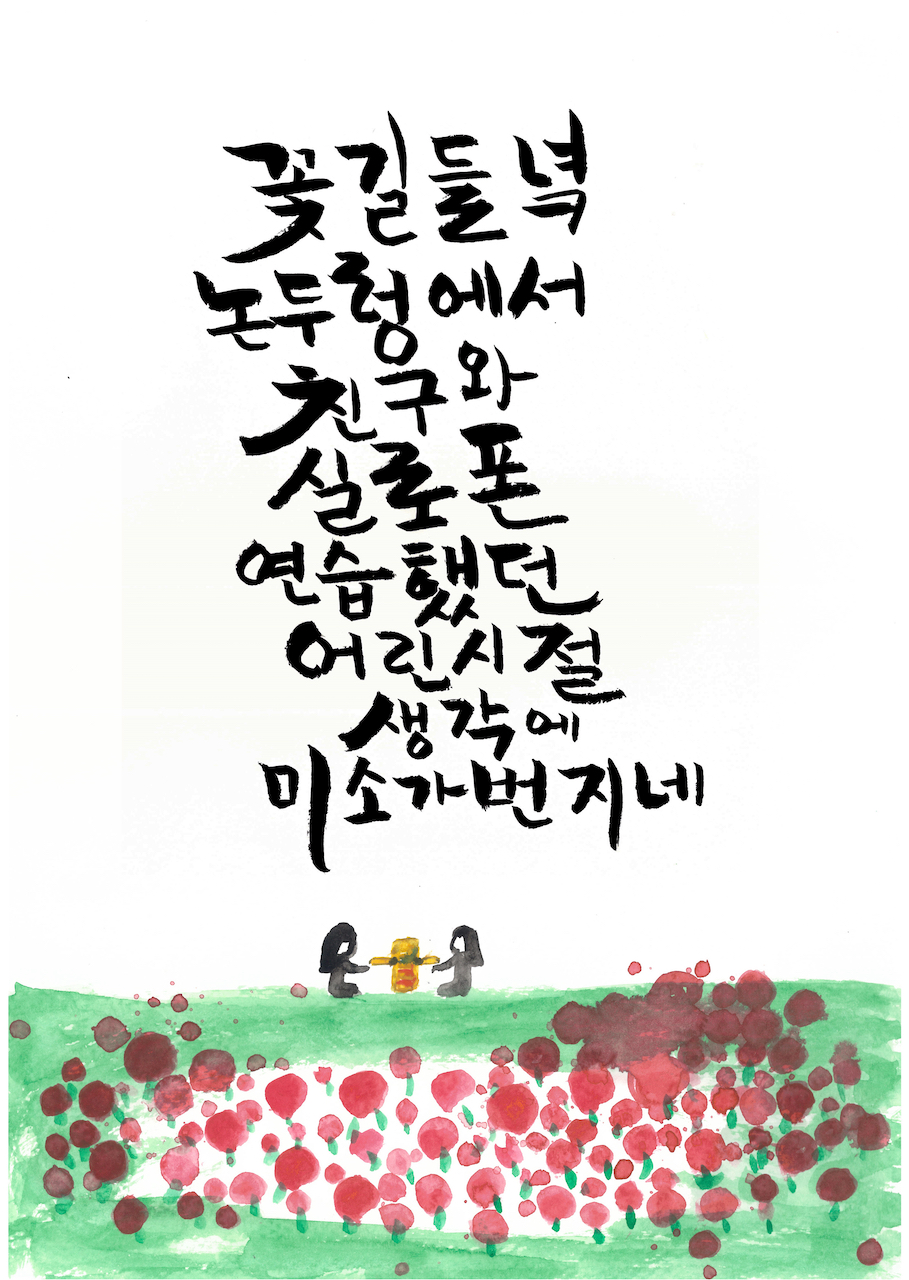 꽃길들녘
논두렁에서
친구와
실로폰
연습했던
어린시절
생각에
미소가번지네